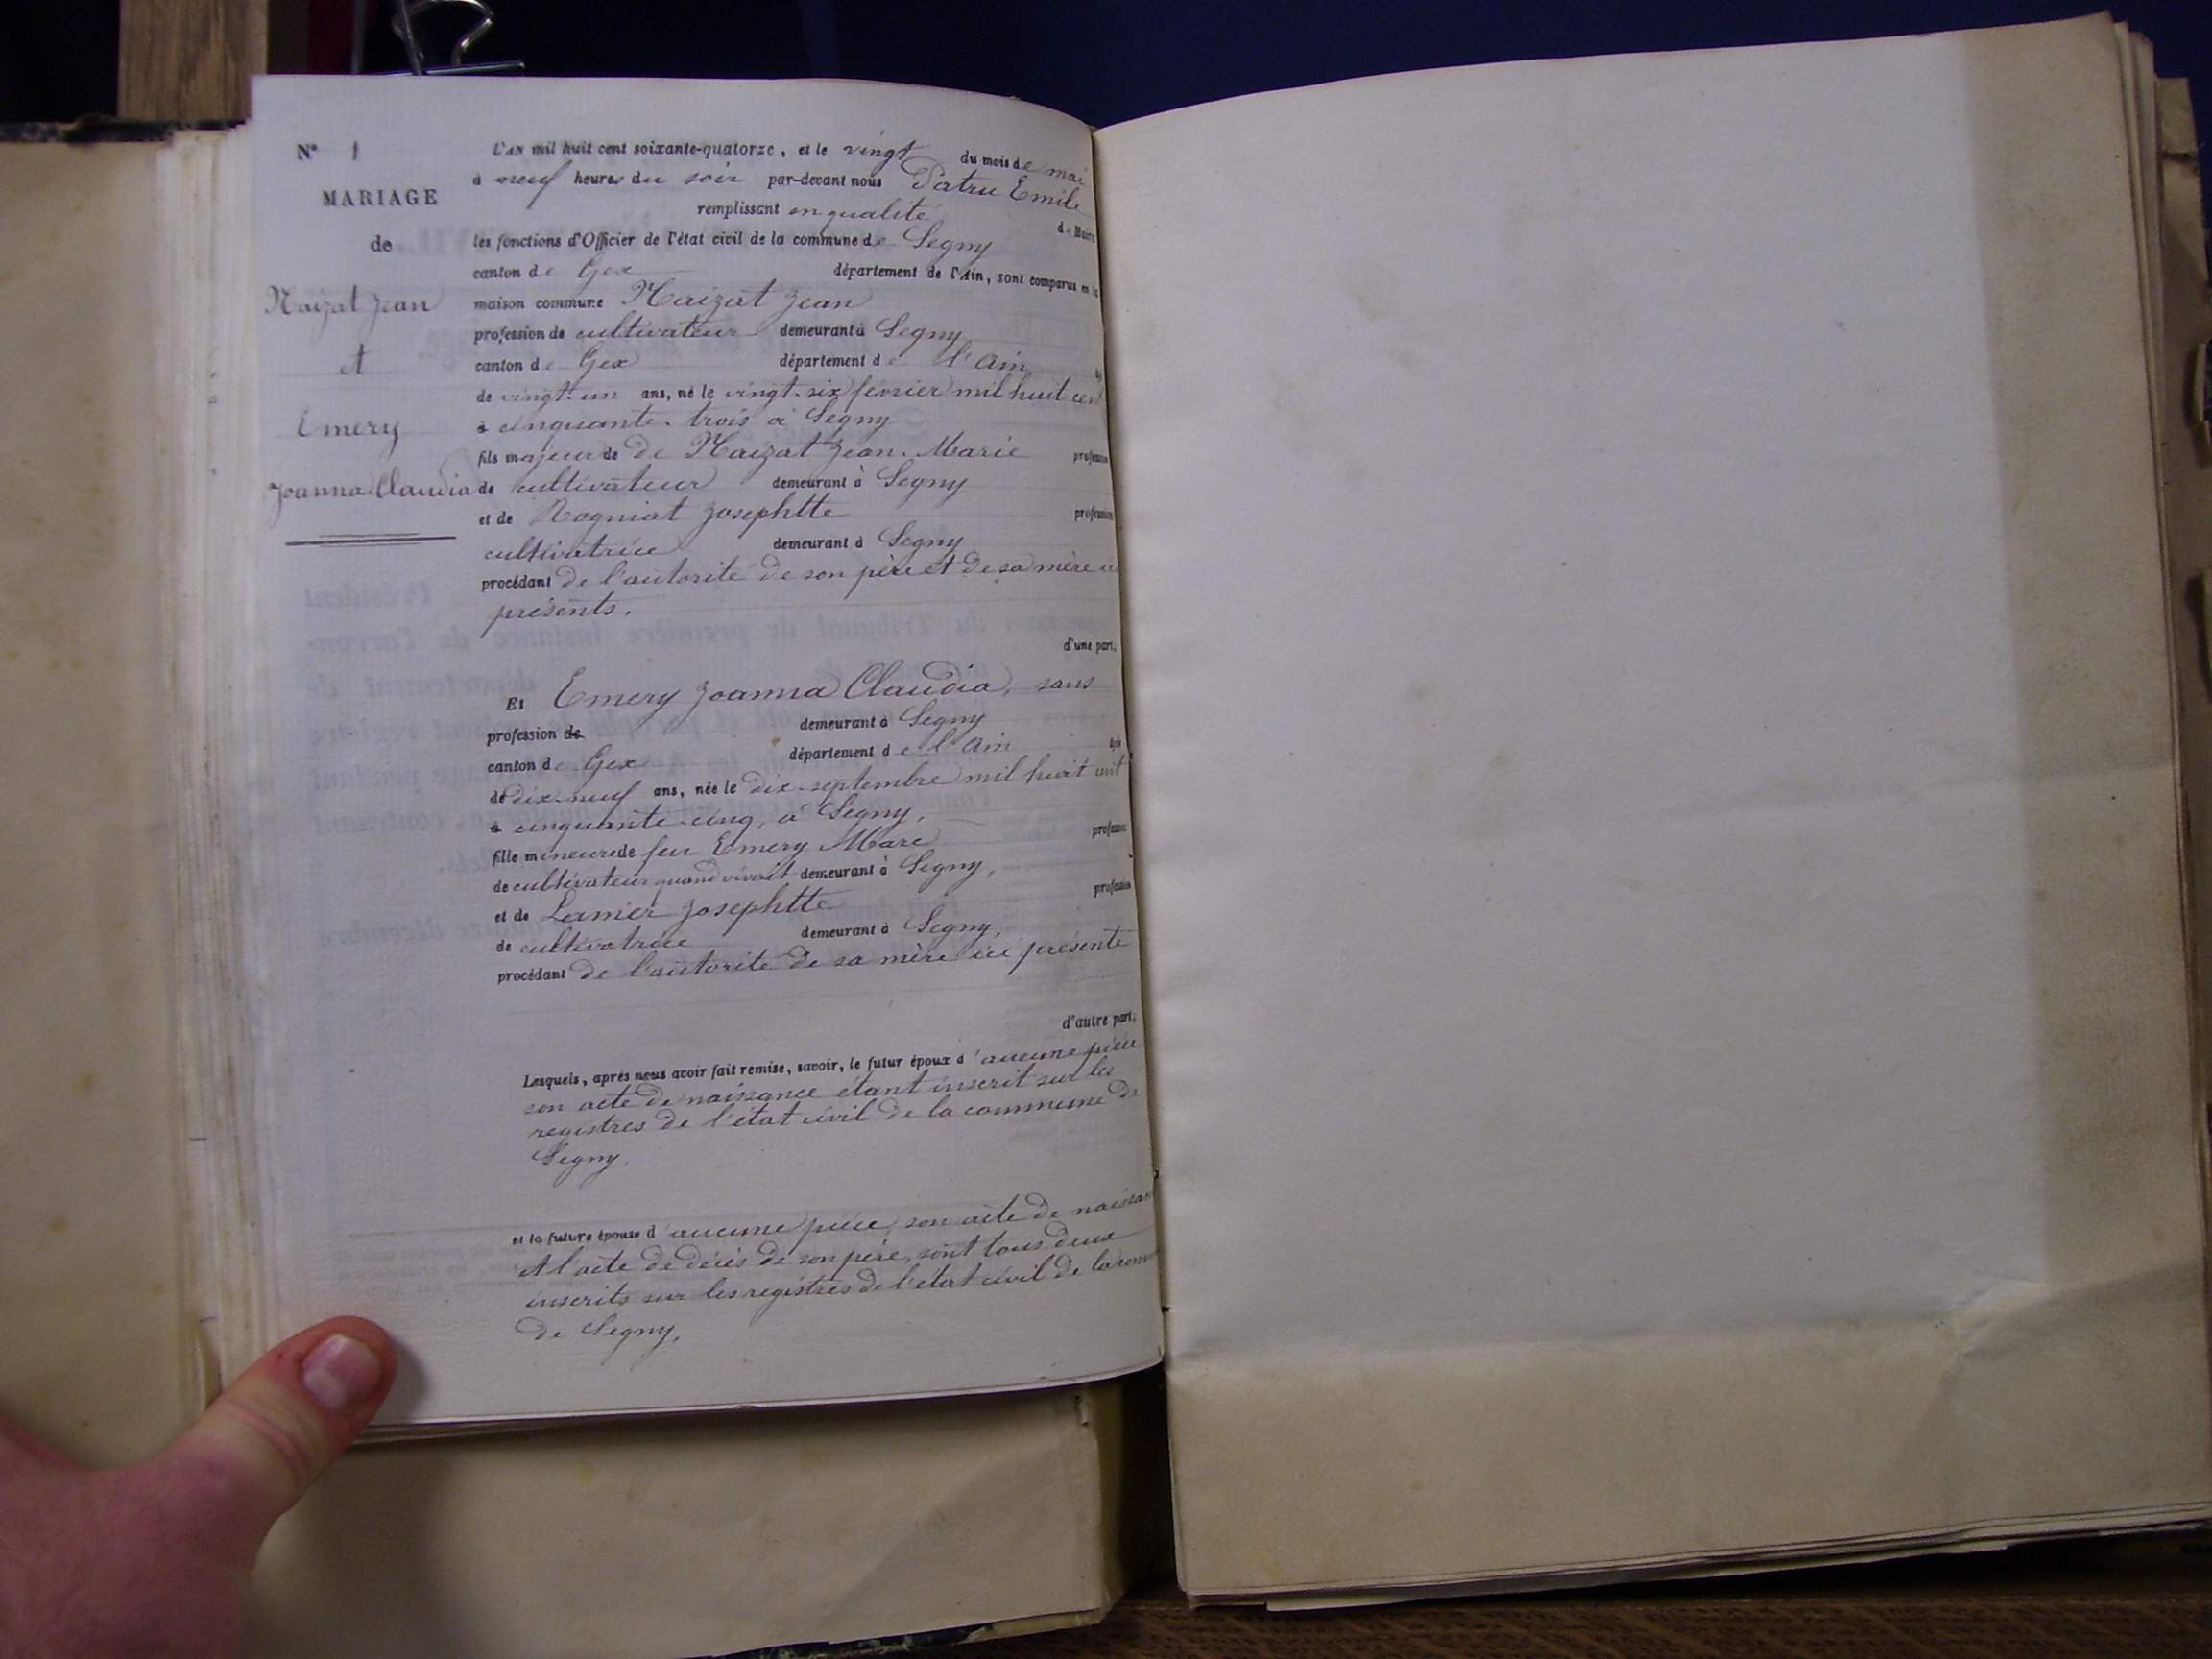 N° 1
MARIAGE
de
Naizat Jean
et
Emery
Joanna Claudia
L'AN mil huit cent soixante-quatorze, et le vingt du mois de mai
à neuf heures du soir par-devant nous Patru Emile
remplissant en qualité de Maire
les fonctions d'Officier de l'état civil de la commune de Segny
canton de Gex département de l'Ain, sont comparus en la
maison commune Naizat Jean
profession de cultivateur demeurant à Segny
canton de Gex département de l'Ain
de vingt-un ans, né le vingt-six février mil huit cent
à cinquante-trois à Segny
fils majeur de de Naizat Jean-Marie profession
de cultivateur demeurant à Segny
et de Rogniat Josephtte profession
cultivatrice demeurant à Segny
procédant de l'autorité de son père et de sa mère
présents.
d'une part,
Et Emery Joanna Claudia, sans
profession de demeurant à Segny
canton de Gex département de l'Ain âgée
de dix-neuf ans, née le dix-septembre mil huit cent
à cinquante-cinq, à Segny,
fille mineure de feu Emery Marc profession
de cultivateur quand vivait demeurant à Segny,
et de Lanier Josephtte profession
de cultivatrice demeurant à Segny,
procédant de l'autorité de sa mère ici présente
d'autre part,
Lesquels, après nous avoir fait remise, savoir, le futur époux d'aucune pièce
son acte de naissance étant inscrit sur les
registres de l'état civil de la commune de
Segny.
et la future épouse d'aucune pièce, son acte de naissan
et l'acte de décès de son père, sont tous deux
inscrits sur les registres de l'état civil de la com
de Segny,